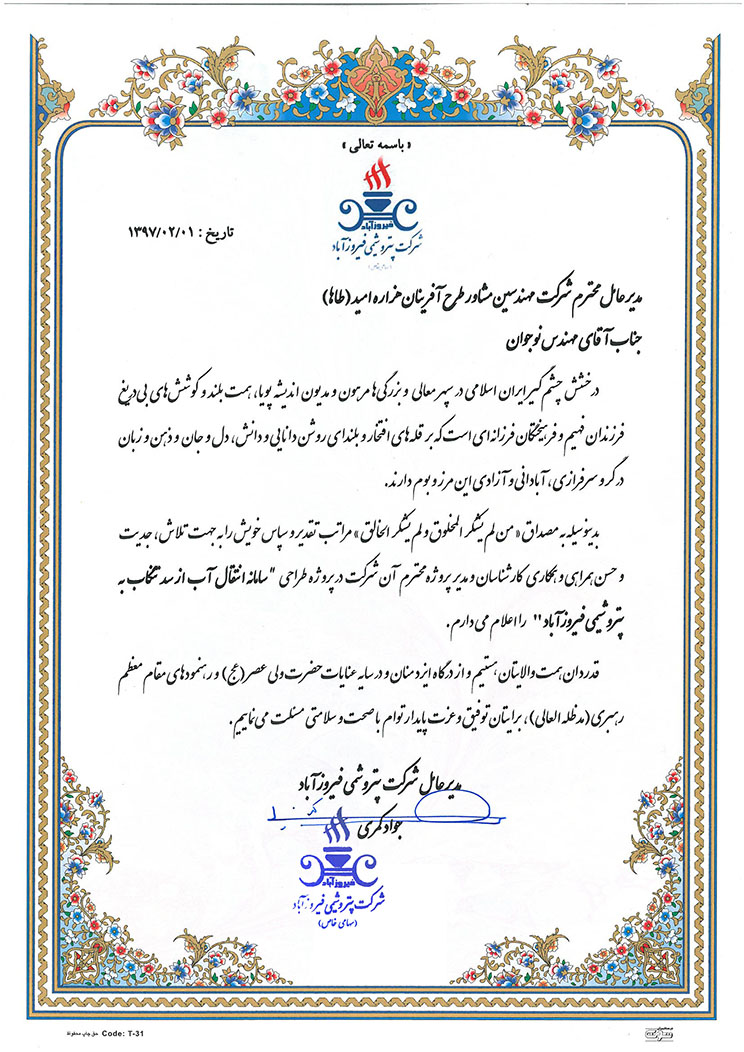 « باسمه تعالی »
فیروزآباد
شرکت پتروشیمی فیروزآباد
(سهامی خاص)
تاریخ : ۱۳۹۷/۰۲/۰۱
مدیرعامل محترم شرکت مهندسین مشاور طرح آفرینان هزاره امید (طاها)
جناب آقای مهندس نوجوان
درخشش چشم گیر ایران اسلامی در سپهر معالی و بزرگی ها مرهون و مدیون اندیشه پویا، همت بلند و کوشش های بی دریغ
فرزندان فهیم و فرهیختگان فرزانه ای است که بر قله های افتخار و بلندای روشن دانایی و دانش، دل و جان و ذهن و زبان
در گرو سرفرازی، آبادانی و آزادی این مرز و بوم دارند.
بدینوسیله به مصداق « من لم یشکر المخلوق و لم یشکر الخالق » مراتب تقدیر و سپاس خویش را به جهت تلاش، جدیت
و حسن همراهی و همکاری کارشناسان و مدیر پروژه محترم آن شرکت در پروژه طراحی "سامانه انتقال آب از سد تنگاب به
پتروشیمی فیروزآباد" را اعلام می دارم.
قدردان همت والایتان هستیم و از درگاه ایزد منان و در سایه عنایات حضرت ولی عصر (عج) و رهنمودهای مقام معظم
رهبری (مدظله العالی)، برایتان توفیق و عزت پایدار توام با صحت و سلامتی مسئلت می نماییم.
مدیرعامل شرکت پتروشیمی فیروزآباد
جواد کمری
فیروزآباد
شرکت پتروشیمی فیروزآباد
(سهامی خاص)
حق چاپ محفوظ Code: T-31